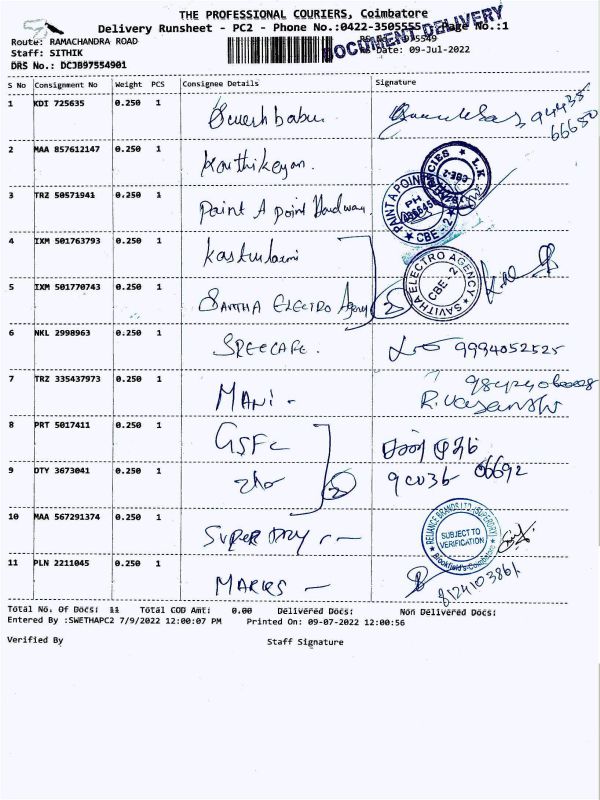 THE PROFESSIONAL COURIERS, Coimbatore
Delivery Runsheet - PC2 - Phone No.:0422-3505555 Page No.:1
DOCUMENT DELIVERY
Route: RAMACHANDRA ROAD
Staff: SITHIK
Date: 09-Jul-2022
DRS No.: DCJB97554901
S No Consignment No Weight PCS Consignee Details Signature
1 KDI 725635 0.250 1 Sureshbabu 94435
66650
2 MAA 857612147 0.250 1 Karthikeyan.
3 TRZ 50571941 0.250 1 Paint A Point Hardware.
PAINT A POINT
CBE - 2
4 IXM 501763793 0.250 1
5 IXM 501770743 0.250 1 SAVITHA ELECTRO Agency 2
SAVITHA ELECTRO AGENCY
CBE - 2
6 NKL 2998963 0.250 1 SREECAFE. 9994052525
7 TRZ 335437973 0.250 1 MANI -
R.Vasanthi
8 PRT 5017411 0.250 1 GSFC
9 DTY 3673041 0.250 1 2
10 MAA 567291374 0.250 1 SUPER DRY - -
RELIANCE BRANDS LTD (SUPERDRY)
SUBJECT TO
VERIFICATION
11 PLN 2211045 0.250 1 MARKS - 8124103861
Total No. Of Docs: 11 Total COD Amt: 0.00 Delivered Docs: Non Delivered Docs:
Entered By :SWETHAPC2 7/9/2022 12:00:07 PM Printed On: 09-07-2022 12:00:56
Verified By Staff Signature